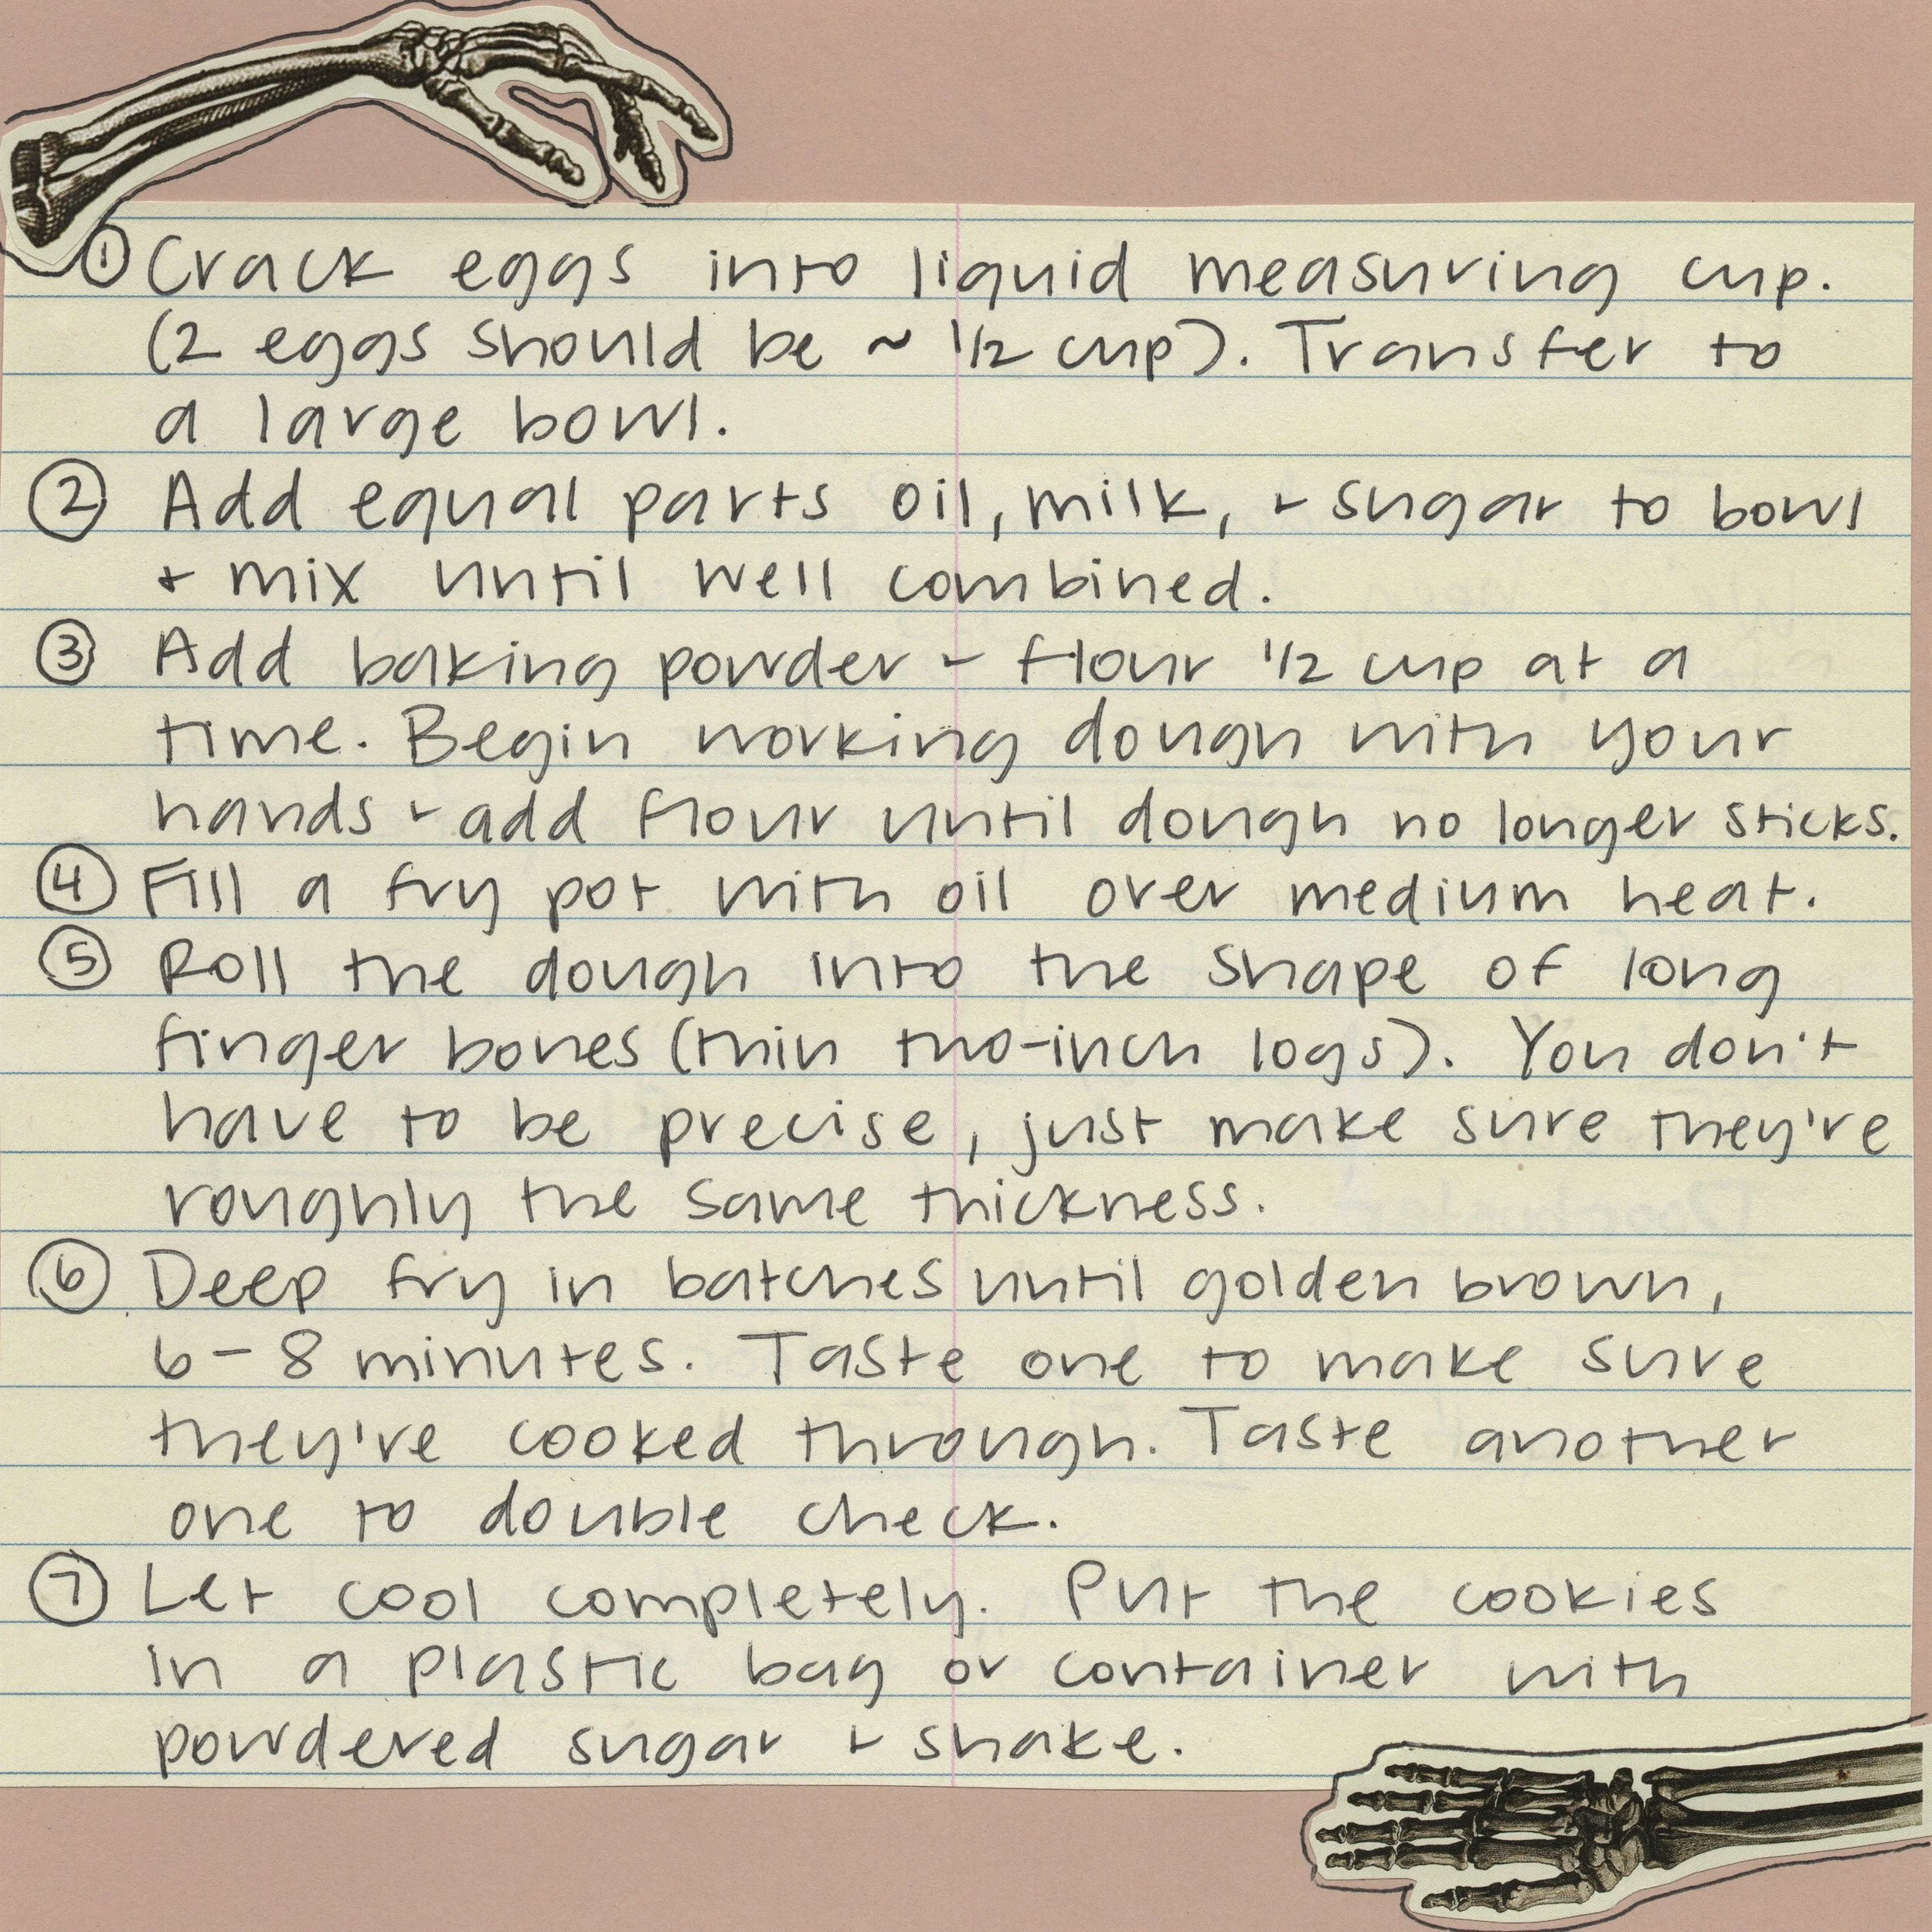 ① Crack eggs into liquid measuring cup.
(2 eggs should be ~ 1/2 cup). Transfer to
a large bowl.
② Add equal parts oil, milk, + sugar to bowl
+ mix until well combined.
③ Add baking powder + flour 1/2 cup at a
time. Begin working dough with your
hands + add flour until dough no longer sticks.
④ Fill a fry pot with oil over medium heat.
⑤ Roll the dough into the shape of long
finger bones (thin two-inch logs). You don't
have to be precise, just make sure they're
roughly the same thickness.
⑥ Deep fry in batches until golden brown,
6-8 minutes. Taste one to make sure
they're cooked through. Taste another
one to double check.
⑦ Let cool completely. Put the cookies
in a plastic bag or container with
powdered sugar + shake.